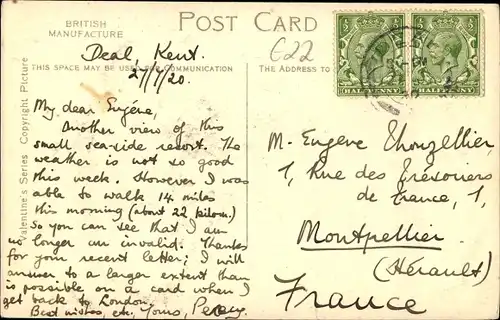 BRITISH
MANUFACTURE
POST CARD
Deal, Kent.
THIS SPACE MAY BE USED FOR COMMUNICATION
27/7/20.
My dear Eugéne,
Another view of this
small sea-side resort. The
weather is not so good
this week. However I was
able to walk 14 miles
this morning (about 22 kilom.)
So you can see that I am
no longer an invalid. Thanks
for your recent letter; I will
answer to a larger extent than
is possible on a card when I
get back to London.
Best wishes, etc. Yours, Percy.
Valentine's Series Copyright Picture
£22
THE ADDRESS TO
HALFPENNY
HALFPENNY
M. Eugène Thouzellier,
1, Rue des Trésoriers
de France, 1,
Montpellier
(Hérault)
France